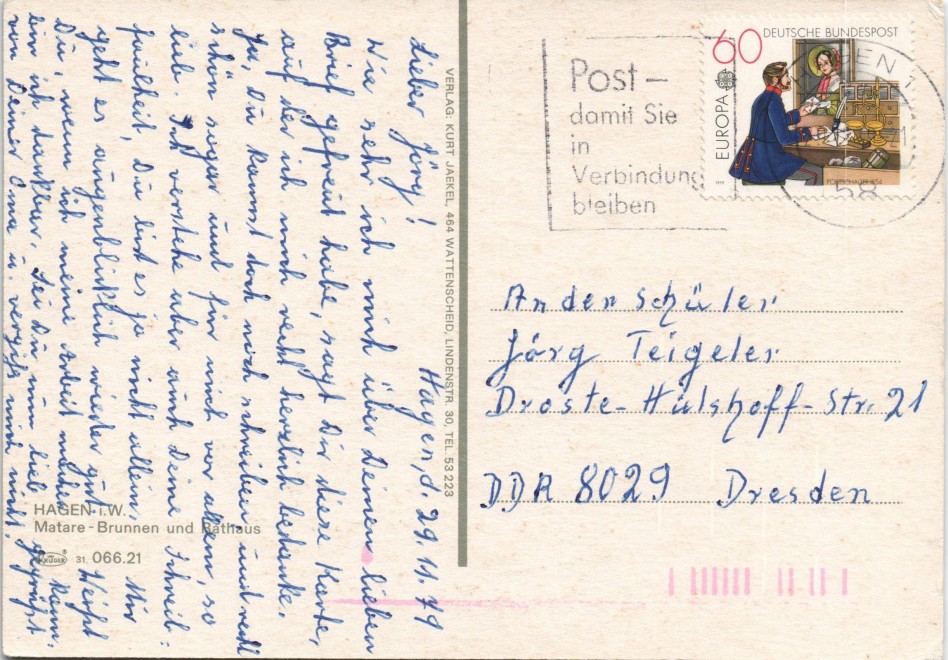 Hagen, d. 29.11.79
Lieber Jörg!
Wie sehr ich mich über Deinen lieben
Brief gefreut habe, sagt Dir diese Karte,
auf der ich mich recht herzlich bedanke.
Ja, Du kannst doch noch schreiben, und recht
schön sogar und für mich vor allem, so
lieb. Ich verstehe aber auch Deine Schreib-
faulheit, Du bist es ja nicht allein. Mir
geht es augenblicklich wieder gut. Weißt
Du, wenn ich meine Arbeit machen kann,
bin ich dankbar. Sei Du nun lieb gegrüßt
von Deiner Oma u. vergiß mich nicht!
HAGEN i.W.
Matare-Brunnen und Rathaus
KRÜGER
31. 066.21
VERLAG: KURT JAEKEL, 464 WATTENSCHEID, LINDENSTR. 30, TEL. 53 223
Post –
damit Sie
in
Verbindung
bleiben
60 DEUTSCHE BUNDESPOST
EUROPA
HAGEN 1
58
An den Schüler
Jörg Teigeler
Droste-Hülshoff-Str. 21
DDR 8029 Dresden